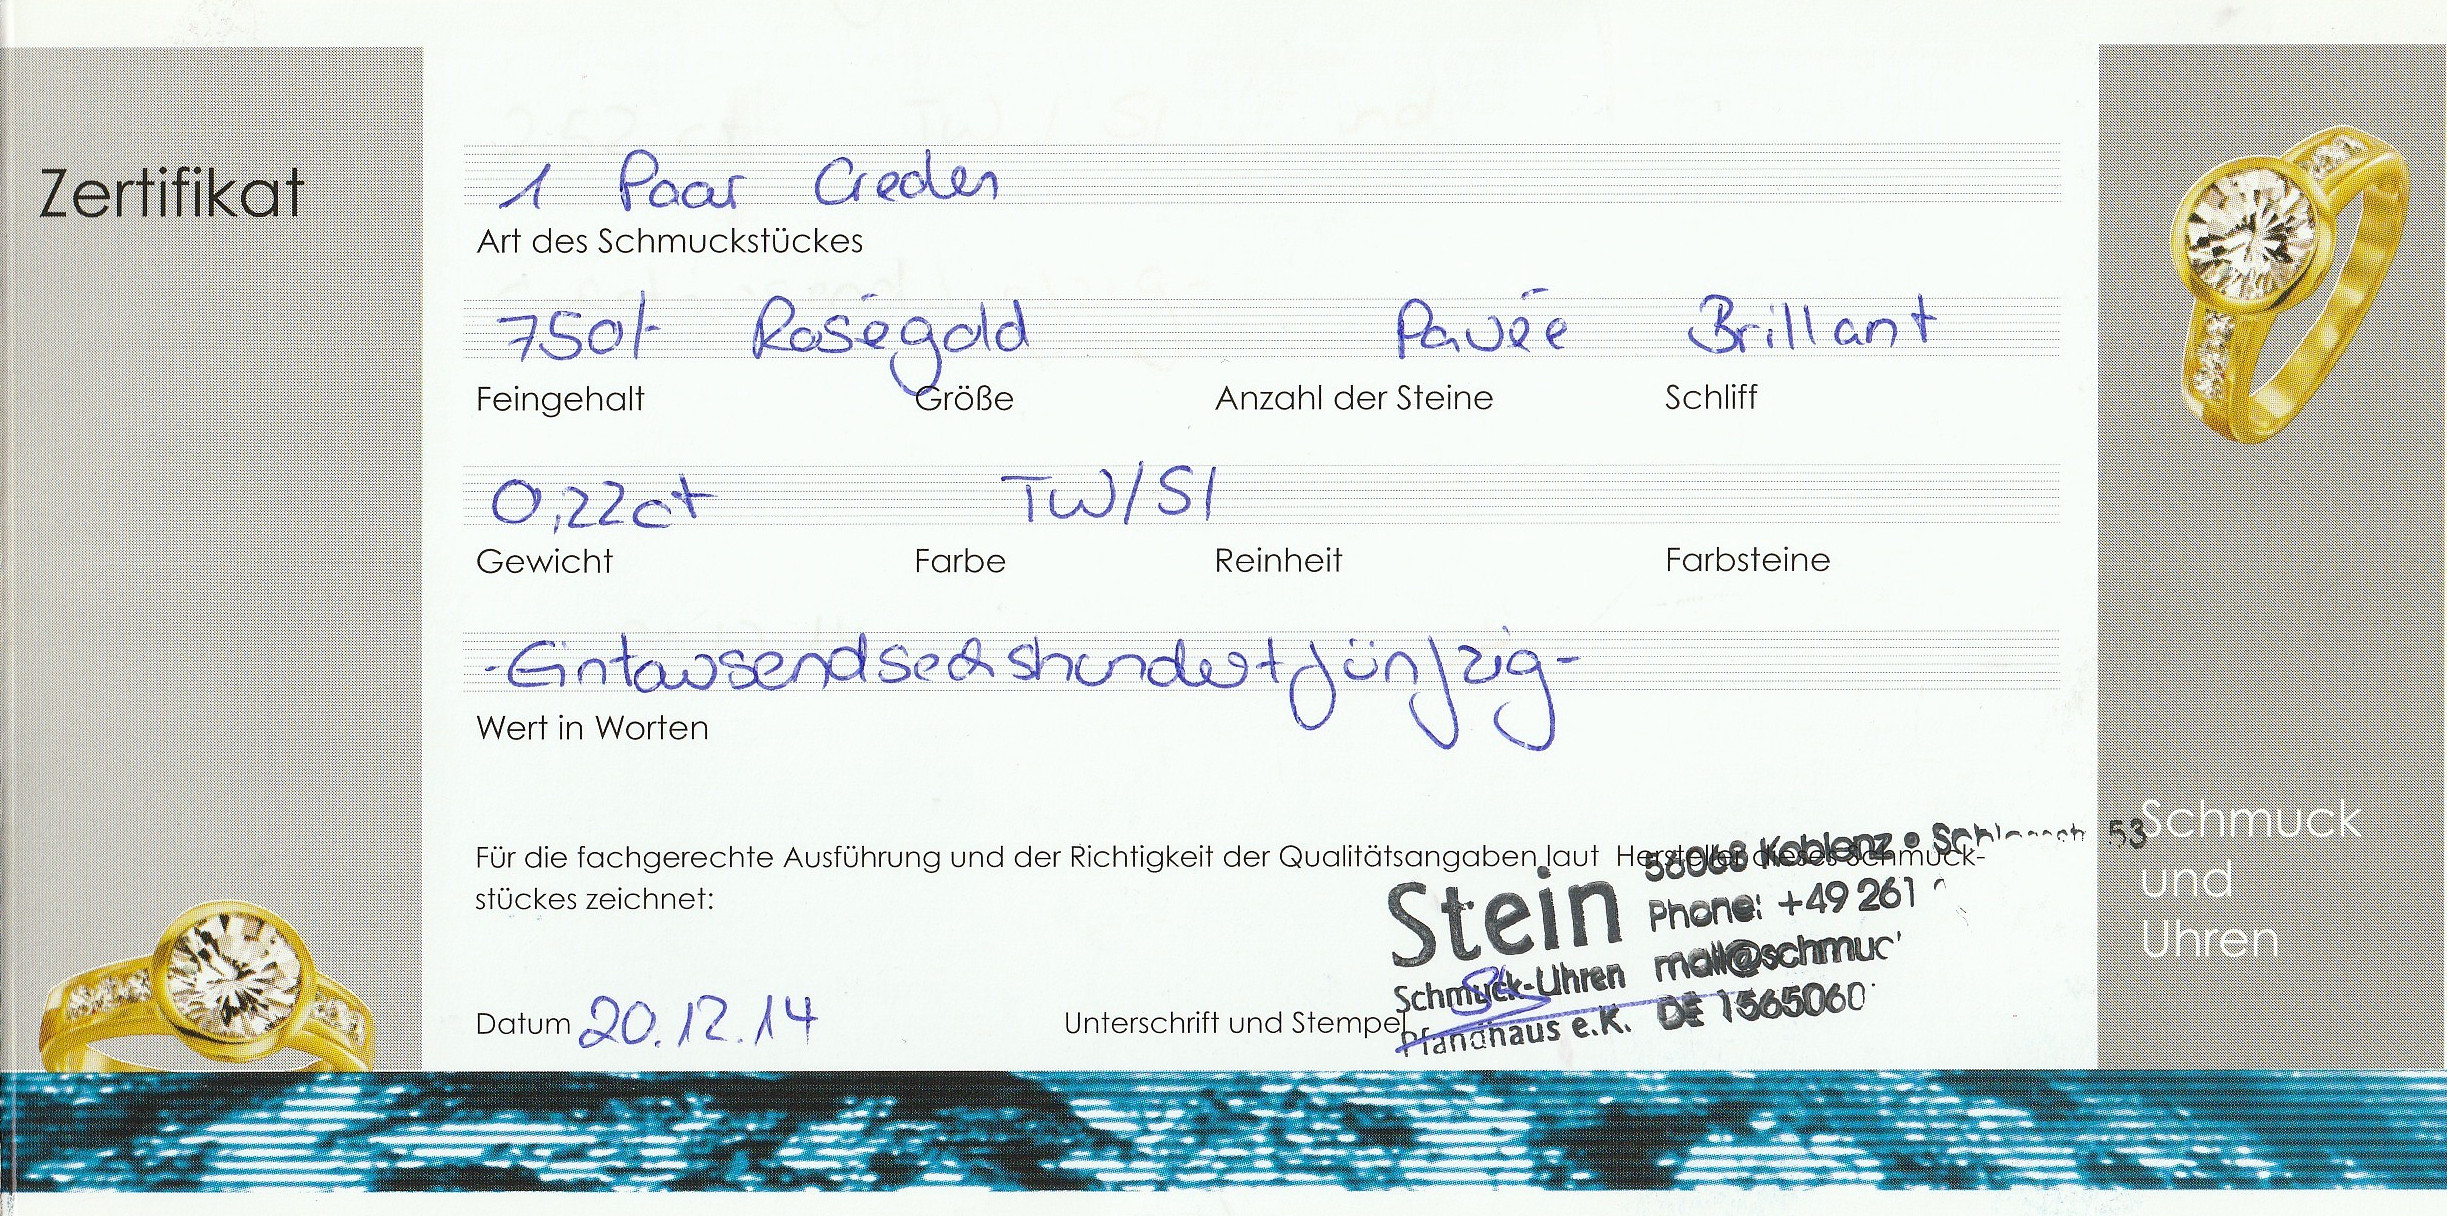 Zertifikat
1 Paar Creolen
Art des Schmuckstückes
750/- Roségold Pavée Brillant
Feingehalt Größe Anzahl der Steine Schliff
0,22ct TW/SI
Gewicht Farbe Reinheit Farbsteine
-Eintausendsechshundertfünfzig-
Wert in Worten
Für die fachgerechte Ausführung und der Richtigkeit der Qualitätsangaben laut Hersteller dieses Schmuck-
stückes zeichnet:
Datum 20.12.14
Unterschrift und Stempel
Stein
Schmuck-Uhren
Pfandhaus e.K.
56068 Koblenz • 53
Phone: +49 261
mail@schmuc
DE 1565060
Schmuck
und
Uhren